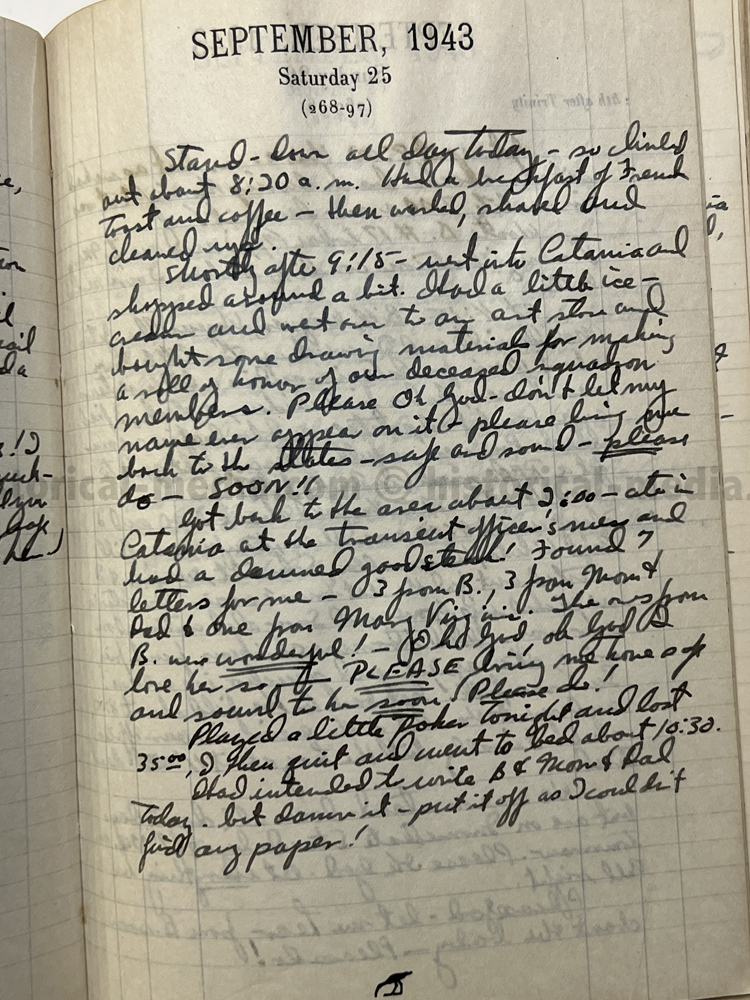 SEPTEMBER, 1943
Saturday 25
(268-97)
Stand-down all day today - so climbed
out about 8:20 a.m. Had a breakfast of French
toast and coffee - then washed, shaved and
cleaned up.
Shortly after 9:15 - went into Catania and
shopped around a bit. Had a little ice-
cream and went over to an art store and
bought some drawing materials for making
a roll of honor of our deceased squadron
members. Please Oh God - don't let my
name ever appear on it - please bring me
back to the States - safe and sound - please
do - SOON!!
Got back to the area about 2:00 - ate in
Catania at the transient officer's mess and
had a damned good steak! Found 7
letters for me - 3 from B., 3 from Mom &
Dad & one from Mary Virginia. The ones from
B. were wonderful! - Oh God, oh God I
love her so - PLEASE bring me home safe
and sound to her soon! Please do!
Played a little poker tonight and lost
35.00, I then quit and went to bed about 10:30.
Had intended to write B & Mom & Dad
today - but damn it - put it off as I couldn't
find any paper!